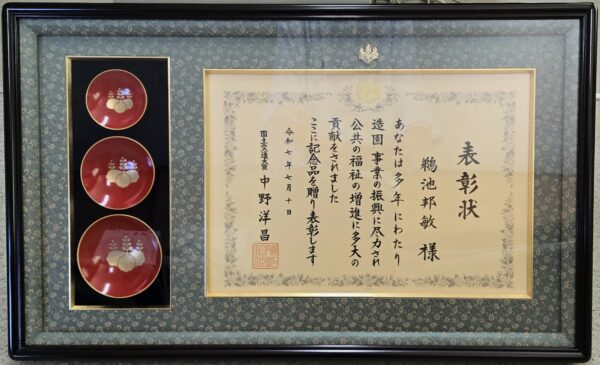 表彰状
鵜池邦敏 様
あなたは多年にわたり
造園 事業の振興に尽力され
公共の福祉の増進に多大の
貢献をされました
ここに記念品を贈り表彰します
令和七年七月十日
国土交通大臣 中野洋昌